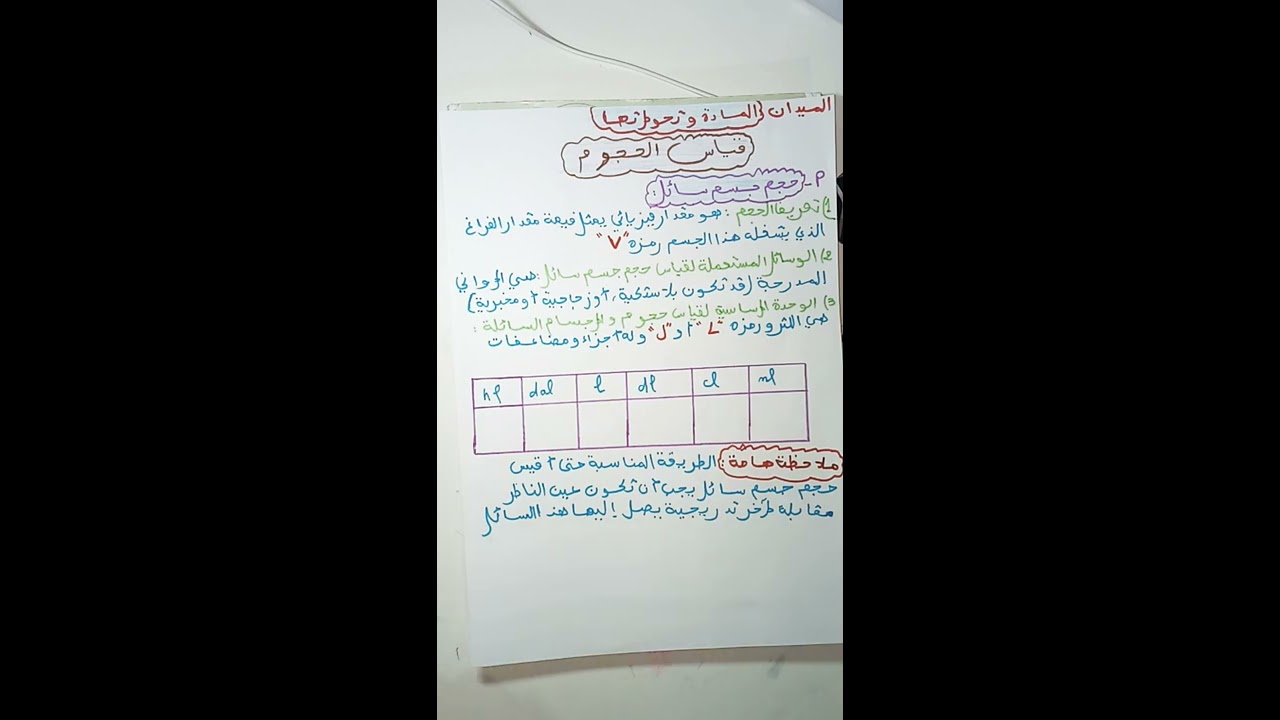 الميدان المادة وتحولاتها
قياس الحجوم
أ- حجم جسم سائل:
1) تعريف الحجم: هو مقدار فيزيائي يمثل قيمة مقدار الفراغ
الذي يشغله هذا الجسم رمزه "V"
2) الوسائل المستعملة لقياس حجم جسم سائل: هي الأواني
المدرجة (قد تكون بلاستيكية، أو زجاجية أو مخبرية)
3) الوحدة الأساسية لقياس حجوم والأجسام السائلة:
هي اللتر ورمزه "L" أو "ل" وله أجزاء ومضاعفات
hl dal l dl cl ml
ملاحظة هامة: الطريقة المناسبة حتى أقيس
حجم جسم سائل يجب أن تكون عين الناظر
مقابلة لآخر تدريجية يصل إليها هذا السائل